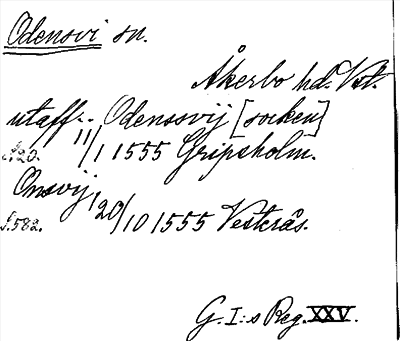 Odensvi sn.
Åkerbo hd. Vst.
utaff.. Odenssvij [socken]
s.120. 11/1 1555 Gripsholm.
Onsvij,
s.582. 20/10 1555 Vesterås.
G. I:s Reg. XXV.